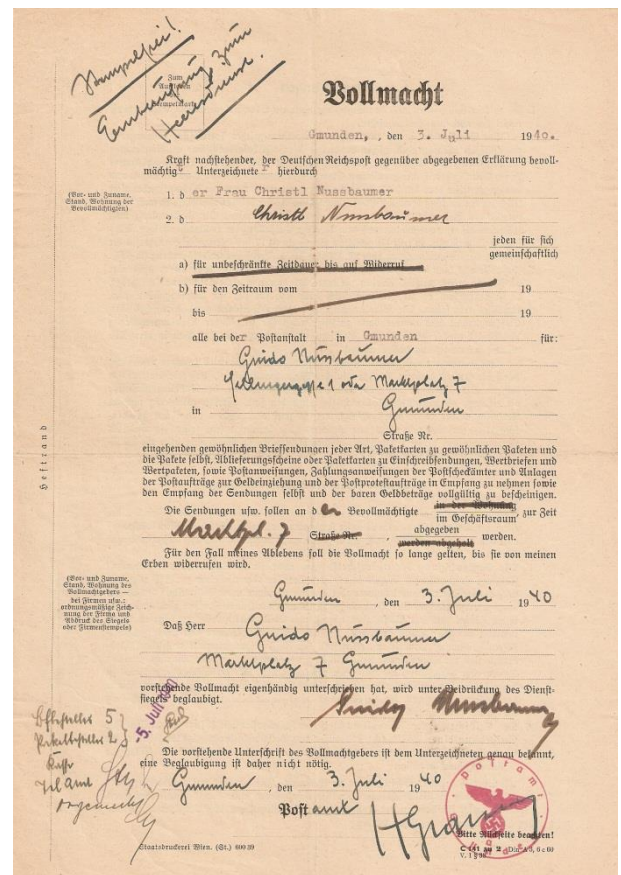 Stempelfrei!
Einberufung zum
Heeresdienst.
Zum
Aufkleben
Stempelmarke
Vollmacht
Gmunden, , den 3. Juli 1940.
Kraft nachstehender, der Deutschen Reichspost gegenüber abgegebenen Erklärung bevoll-
mächtig Unterzeichnete r hierdurch
(Vor- und Zuname,
Stand, Wohnung der
Bevollmächtigten)
1. d er Frau Christl Nussbaumer
2. d Christl Nussbaumer
jeden für sich
gemeinschaftlich
a) für unbeschränkte Zeitdauer bis auf Widerruf
b) für den Zeitraum vom 19
bis 19
alle bei der Postanstalt in Gmunden für:
Guido Nussbaumer
1 oder Marktplatz 7
in Gmunden
Straße Nr.
eingehenden gewöhnlichen Briefsendungen jeder Art, Paketkarten zu gewöhnlichen Paketen und
die Pakete selbst, Ablieferungsscheine oder Paketkarten zu Einschreibsendungen, Wertbriefen und
Wertpaketen, sowie Postanweisungen, Zahlungsanweisungen der Postscheckämter und Anlagen
der Postaufträge zur Geldeinziehung und der Postprotestaufträge in Empfang zu nehmen sowie
den Empfang der Sendungen selbst und der baren Geldbeträge vollgültig zu bescheinigen.
Die Sendungen usw. sollen an d er Bevollmächtigte in der Wohnung
im Geschäftsraum, zur Zeit
Marktpl. 7 Straße Nr. abgegeben
werden abgeholt werden.
Für den Fall meines Ablebens soll die Vollmacht so lange gelten, bis sie von meinen
Erben widerrufen wird.
Heftrand
(Vor- und Zuname,
Stand, Wohnung des
Vollmachtgebers —
bei Firmen usw.:
ordnungsmäßige Zeich-
nung der Firma und
Abdruck des Siegels
oder Firmenstempels)
Gmunden , den 3. Juli 1940
Daß Herr Guido Nussbaumer
Marktplatz 7 Gmunden
vorstehende Vollmacht eigenhändig unterschrieben hat, wird unter Beidrückung des Dienst-
siegels beglaubigt.
Guido Nussbaumer
-5. Juli 1940
5
2
Die vorstehende Unterschrift des Vollmachtgebers ist dem Unterzeichneten genau bekannt,
eine Beglaubigung ist daher nicht nötig.
Gmunden , den 3. Juli 1940
Postamt
Postamt
Bitte Rückseite beachten!
Staatsdruckerei Wien. (St.) 800 39
C 141 zu 2 Din A 5, 6 c 60